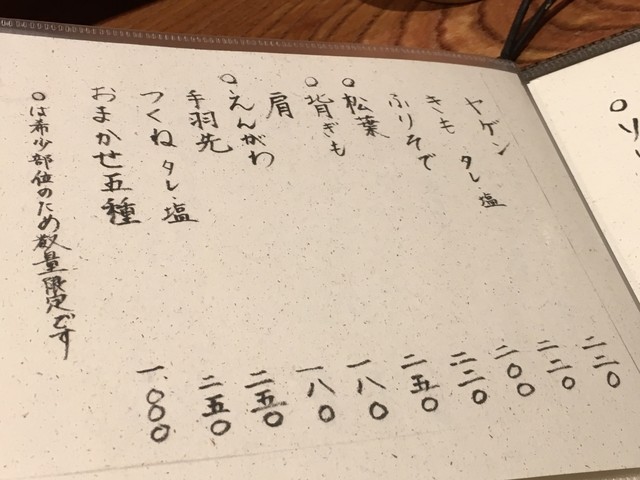 ヤゲン 二二〇
きも タレ 塩 二二〇
ふりそで 二〇〇
○松葉 二二〇
○背ぎも 二五〇
肩 一八〇
○えんがわ 一八〇
手羽先 二五〇
つくね タレ、塩 二五〇
おまかせ五種 一、〇〇〇
○は希少部位のため数量限定です